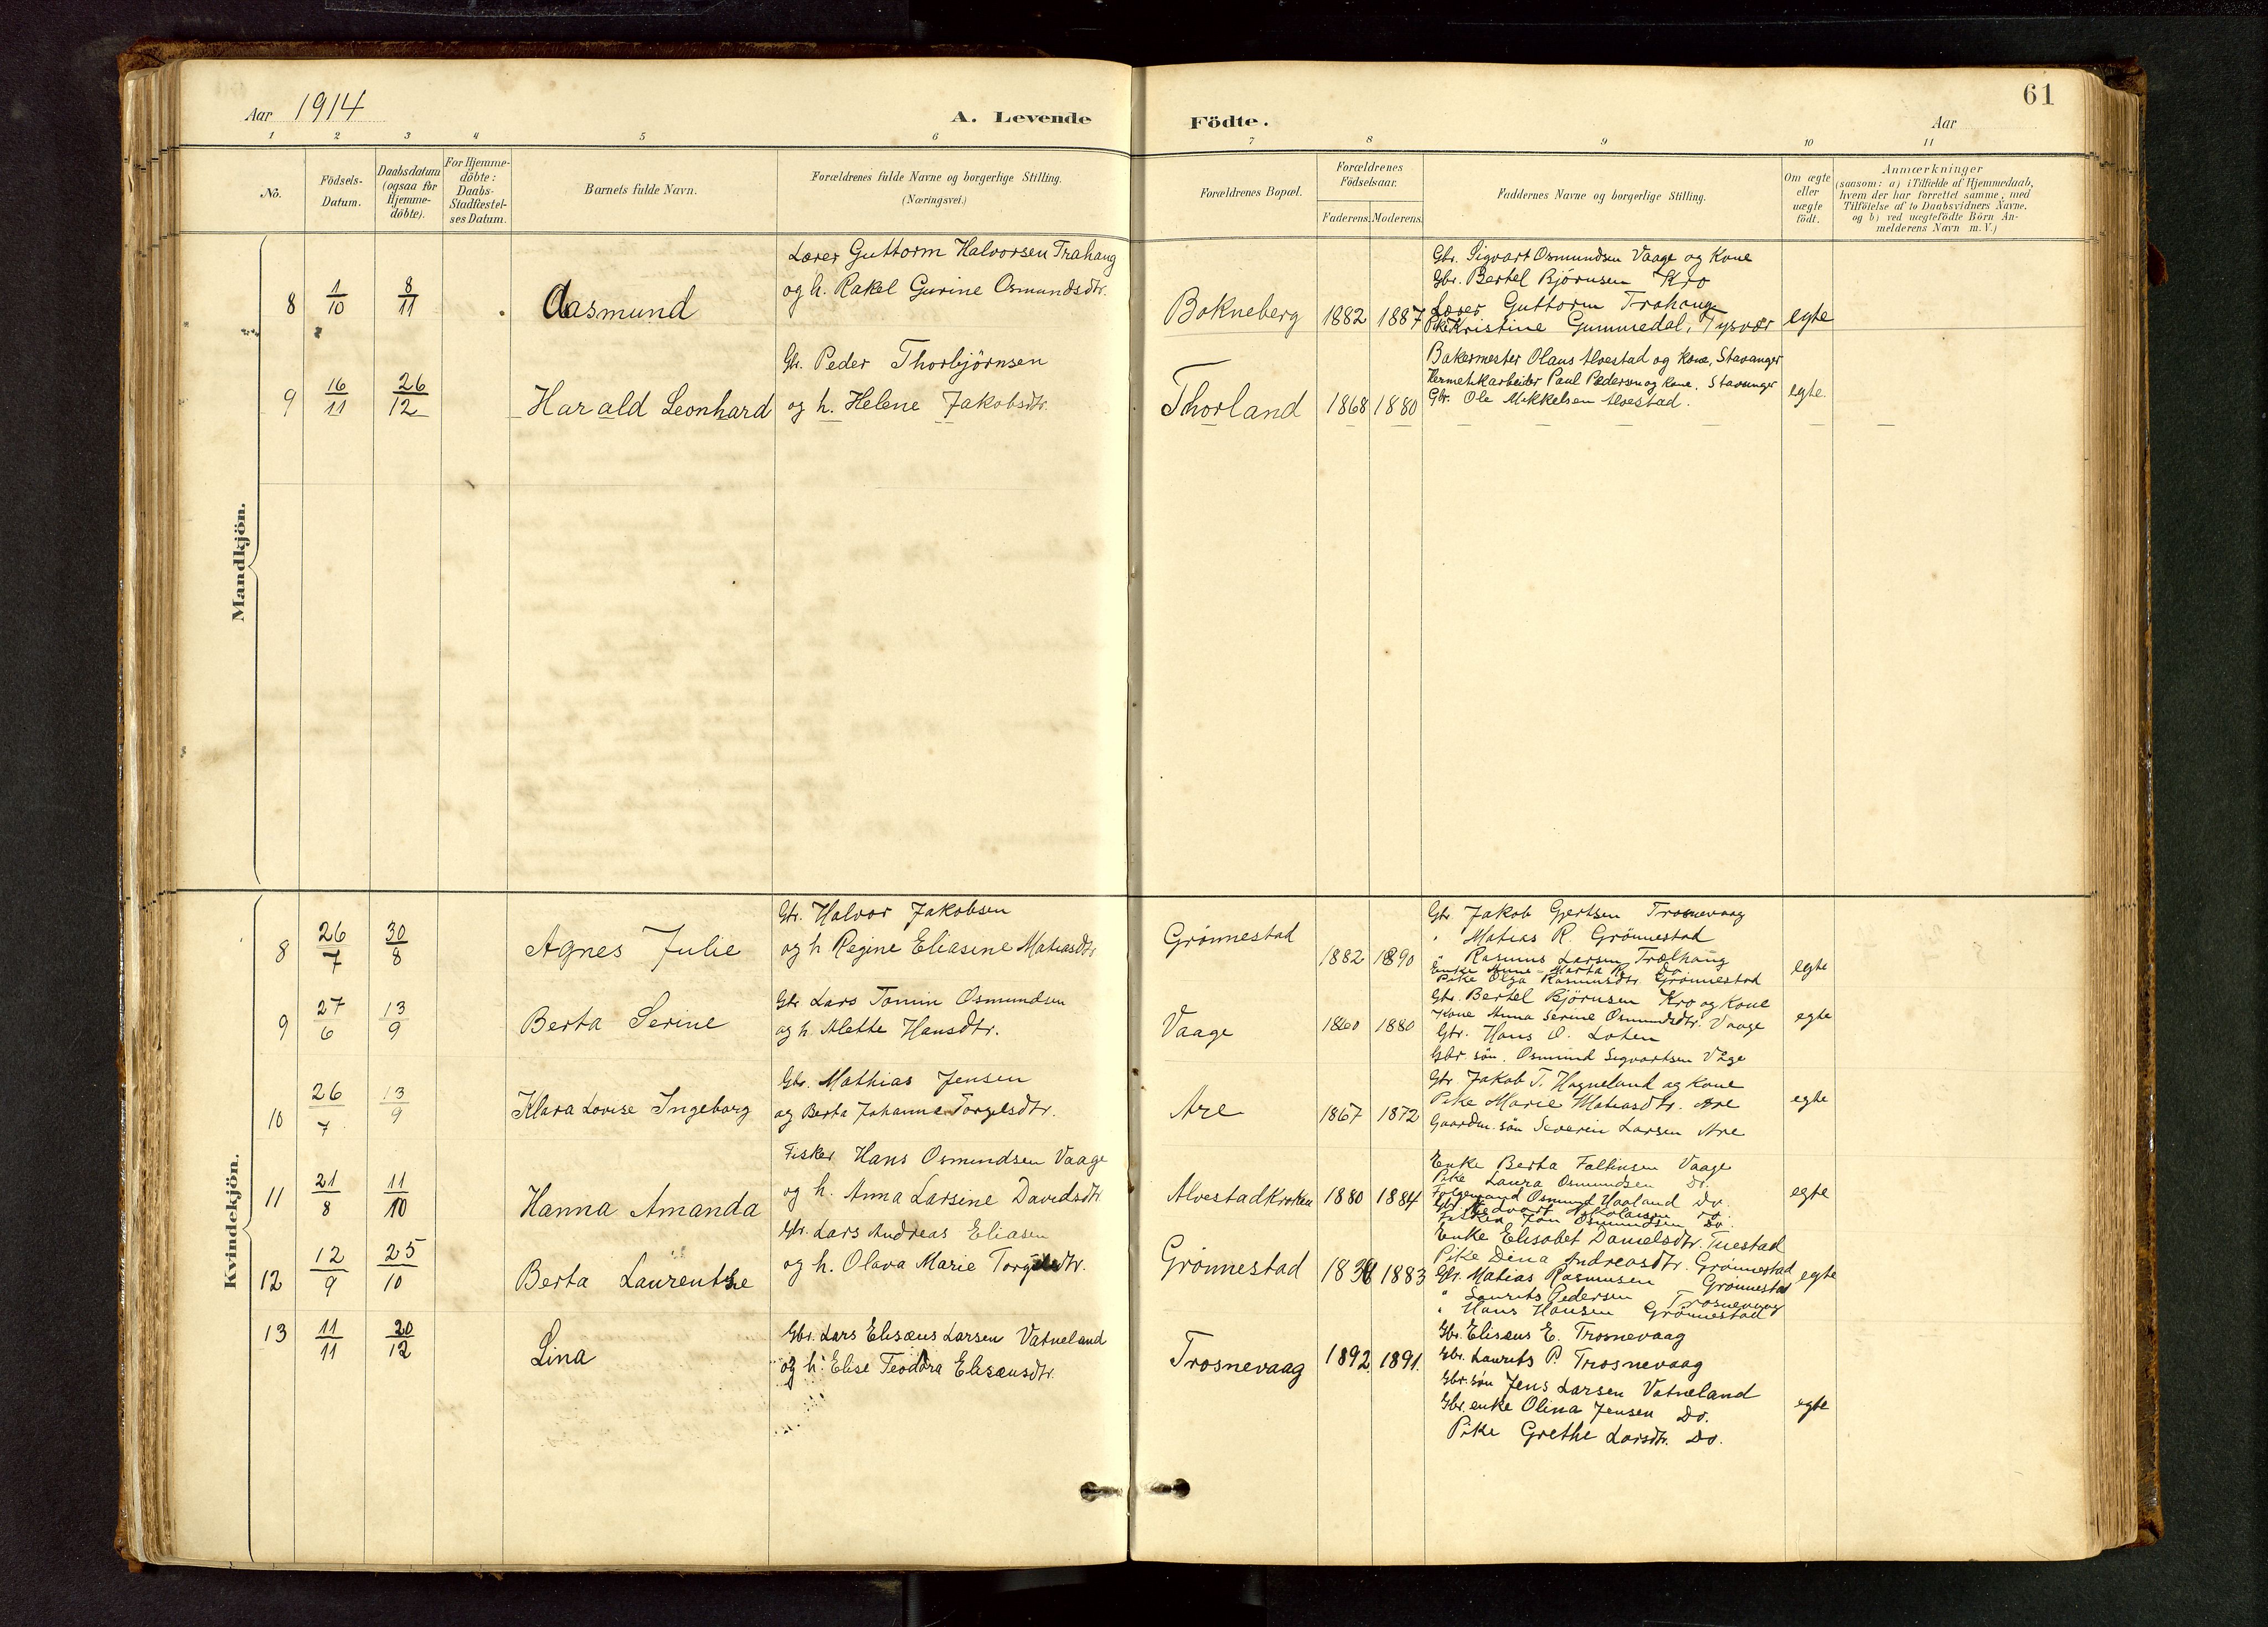 61
Aar 1914
A. Levende
Födte.
Aar
1 2 3 4 5 6 7 8 9 10 11
No.
Födsels-
Datum.
Daabsdatum
(ogsaa for
Hjemme-
döbte).
For Hjemme-
döbte:
Daabs-
Stadfæstel-
ses Datum.
Barnets fulde Navn.
Forældrenes fulde Navne og borgerlige Stilling.
(Næringsvei.)
Forældrenes Bopæl.
Forældrenes
Födselsaar.
Faderens. Moderens.
Faddernes Navne og borgerlige Stilling.
Om ægte
eller
uægte
födt.
Anmærkninger
(saasom: a) i Tilfælde af Hjemmedaab,
hvem der har forrettet samme, med
Tilföielse af to Daabsvidners Navne,
og b) ved uægtefödte Börn An-
melderens Navn m. V.)
Mandkjön.
8 1/10 8/11 Aasmund
Lærer Guttorm Halvorsen Trahaug
og h. Rakel Gurine Osmundsdtr.
Bokneberg 1882 1887
Gbr. Sigvart Osmundsen Vaage og Kone
Gbr. Bertel Björnsen Kro
Lærer Guttorm Trahaug
Pike Kristine Gummedal, Tysvær
egte
9 16/11 26/12 Harald Leonhard
Gbr. Peder Thorbjörnsen
og h. Helene Jakobsdtr.
Thorland 1868 1880
Bakermester Olaus Alvestad og Kone, Stavanger
Hermetikarbeider Paul Pedersen og Kone, Stavanger
Gbr. Ole Mikkelsen Alvestad.
egte.
Kvindekjön.
8 26/7 30/8 Agnes Julie
Gbr. Halvor Jakobsen
og h Regine Eliasine Matiasdtr
Grönnestad 1882 1890
Gbr. Jakob Gjertsen Trosnevaag
" Matias R. Grönnestad
" Rasmus Larsen Trælhaug
Enke Anne Marta R. Do
Pike Olga Rasmusdtr. Grönnestad
egte
9 27/6 13/9 Berta Serine
Gbr Lars Tomin Osmundsen
og h. Alette Hansdtr.
Vaage 1860 1880
Gbr. Bertel Björnsen Kro og Kone
Kone Anna Serine Osmundsdtr. Vaage
Gbr. Hans O. Loten
Gbr. sön. Osmund Sigvartsen Våge
egte
10 26/7 13/9 Klara Lovise Ingeborg
Gbr. Mathias Jensen
og Berta Johanne Torgelsdtr.
Are 1867 1872
Gbr. Jakob T. Hogneland og Kone
Pike Marie Matiasdtr. Are
Gaardm. sön Severin Larsen Are
egte
11 21/8 11/10 Hanna Amanda
Fisker Hans Osmundsen Vaage
og h. Anna Larsine Davidsdtr
Alvestadkroken 1880 1884
Enke Berta Faltinsen Vaage
Pike Laura Osmundsen Do.
Folgemand Osmund Haaland Do.
Fisker Jon Osmundsen Do.
egte
12 12/9 25/10 Berta Laurentse
Gbr. Lars Andreas Eliasen
og h. Olava Marie
Grönnestad 1883
Enke Elisabet Danielsdtr. Tuestad
Pike Dina Andreasdtr. Grönnestad
Gbr. Matias Rasmusen Grönnestad
" Laurits Pedersen Trosnevaag
" Hans Hansen Grönnestad
egte
13 11/11 20/12 Lina
Gbr. Lars Elisæus Larsen Vatneland
og h. Elise Teodora Elisæusdtr.
Trosnevaag 1892. 1891.
Gbr. Elisæus E. Trosnevaag
Gbr. Laurits P. Trosnevaag
Gbr. sön Jens Larsen Vatneland
Gbr. enke Olina Jensen Do.
Pike Grethe Larsdtr. Do.
egte